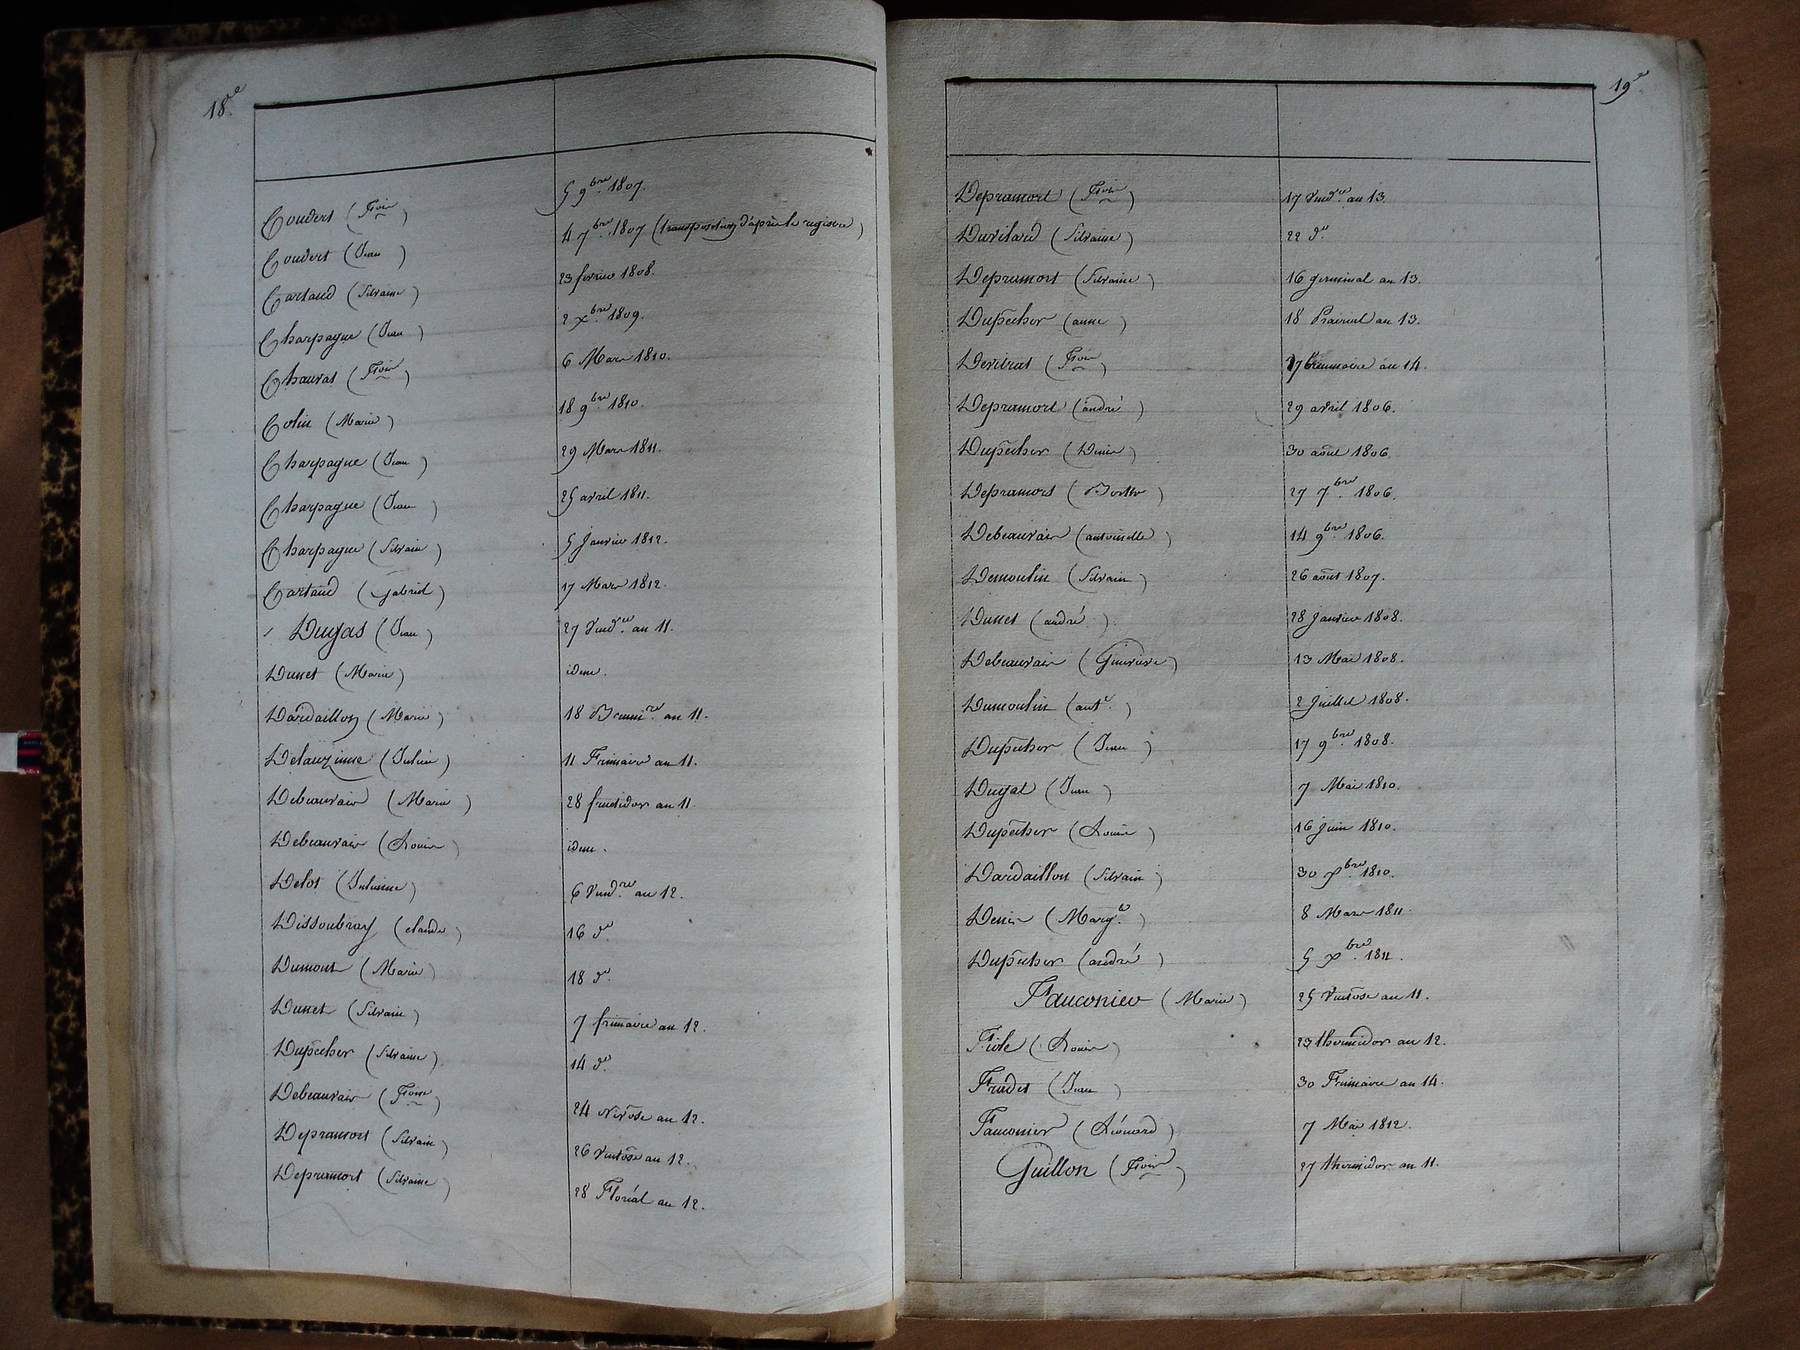 18.e
Coudert (Fois) 5 9bre 1807.
Coudert (Jean) 4 7bre 1807 (transposition d'après le registre)
Cartaud (Silvaine) 23 fevrier 1808.
Charpagne (Jean) 2 Xbre 1809.
Chauvat (Fois) 6 Mars 1810.
Colin (Marie) 18 9bre 1810.
Charpagne (Jean) 29 Mars 1811.
Charpagne (Jean) 25 avril 1811.
Charpagne (Silvain) 5 Janvier 1812.
Cartaud (Gabriel) 17 Mars 1812.
Dugas (Jean) 27 Vendre. an 11.
Dunet (Marie) idem.
Dardaillon (Marie) 18 Brumre. an 11.
Delauzinne (Julien) 11 Frimaire an 11.
Debeauvais (Marie) 28 fructidor an 11.
Debeauvais (Louis) idem.
Delot (Julienne) 6 Vendre. an 12.
Dissoubray (claude) 16 de.
Dumont (Marie) 18 de.
Dunet (Silvain) 7 frimaire an 12.
Dupecher (Silvaine) 14 de.
Debeauvais (Foise) 24 Nivôse an 12.
Depramort (Silvain) 26 Ventôse an 12.
Depramort (Silvaine) 28 Floréal an 12.
19.e
Depramort (Fois) 17 Vendre. an 13.
(Silvaine) 22 de
Depramort (Silvaine) 16 germinal an 13.
Dupecher (anne) 18 Prairial an 13.
(Fois) 27 brumaire an 14.
Depramort (andré) 29 avril 1806.
Dupecher (Denis) 30 août 1806.
Depramort 27 7bre. 1806.
Debeauvais (antoinette) 14 9bre. 1806.
Demoulin (Silvain) 26 août 1807.
Dunet (andré) 28 Janvier 1808.
Debeauvais (Génévieve) 13 Mai 1808.
Dumoulin (ante.) 2 Juillet 1808.
Dupecher (Jean) 17 9bre 1808.
Dugat (Jean) 7 Mai 1810.
Dupecher (Louis) 16 Juin 1810.
Dardaillon (Silvain) 30 Xbre 1810.
Denis (Margte.) 8 Mars 1811.
Dupecher (andré) 5 Xbre. 1811.
Fauconier (Marie) 25 Ventose an 11.
(Louis) 23 thermidor an 12.
Fradet (Jean) 30 Frimaire an 14.
Fauconier (Léonard) 7 Mai 1812.
Guillon (Fois) 27 thermidor an 11.